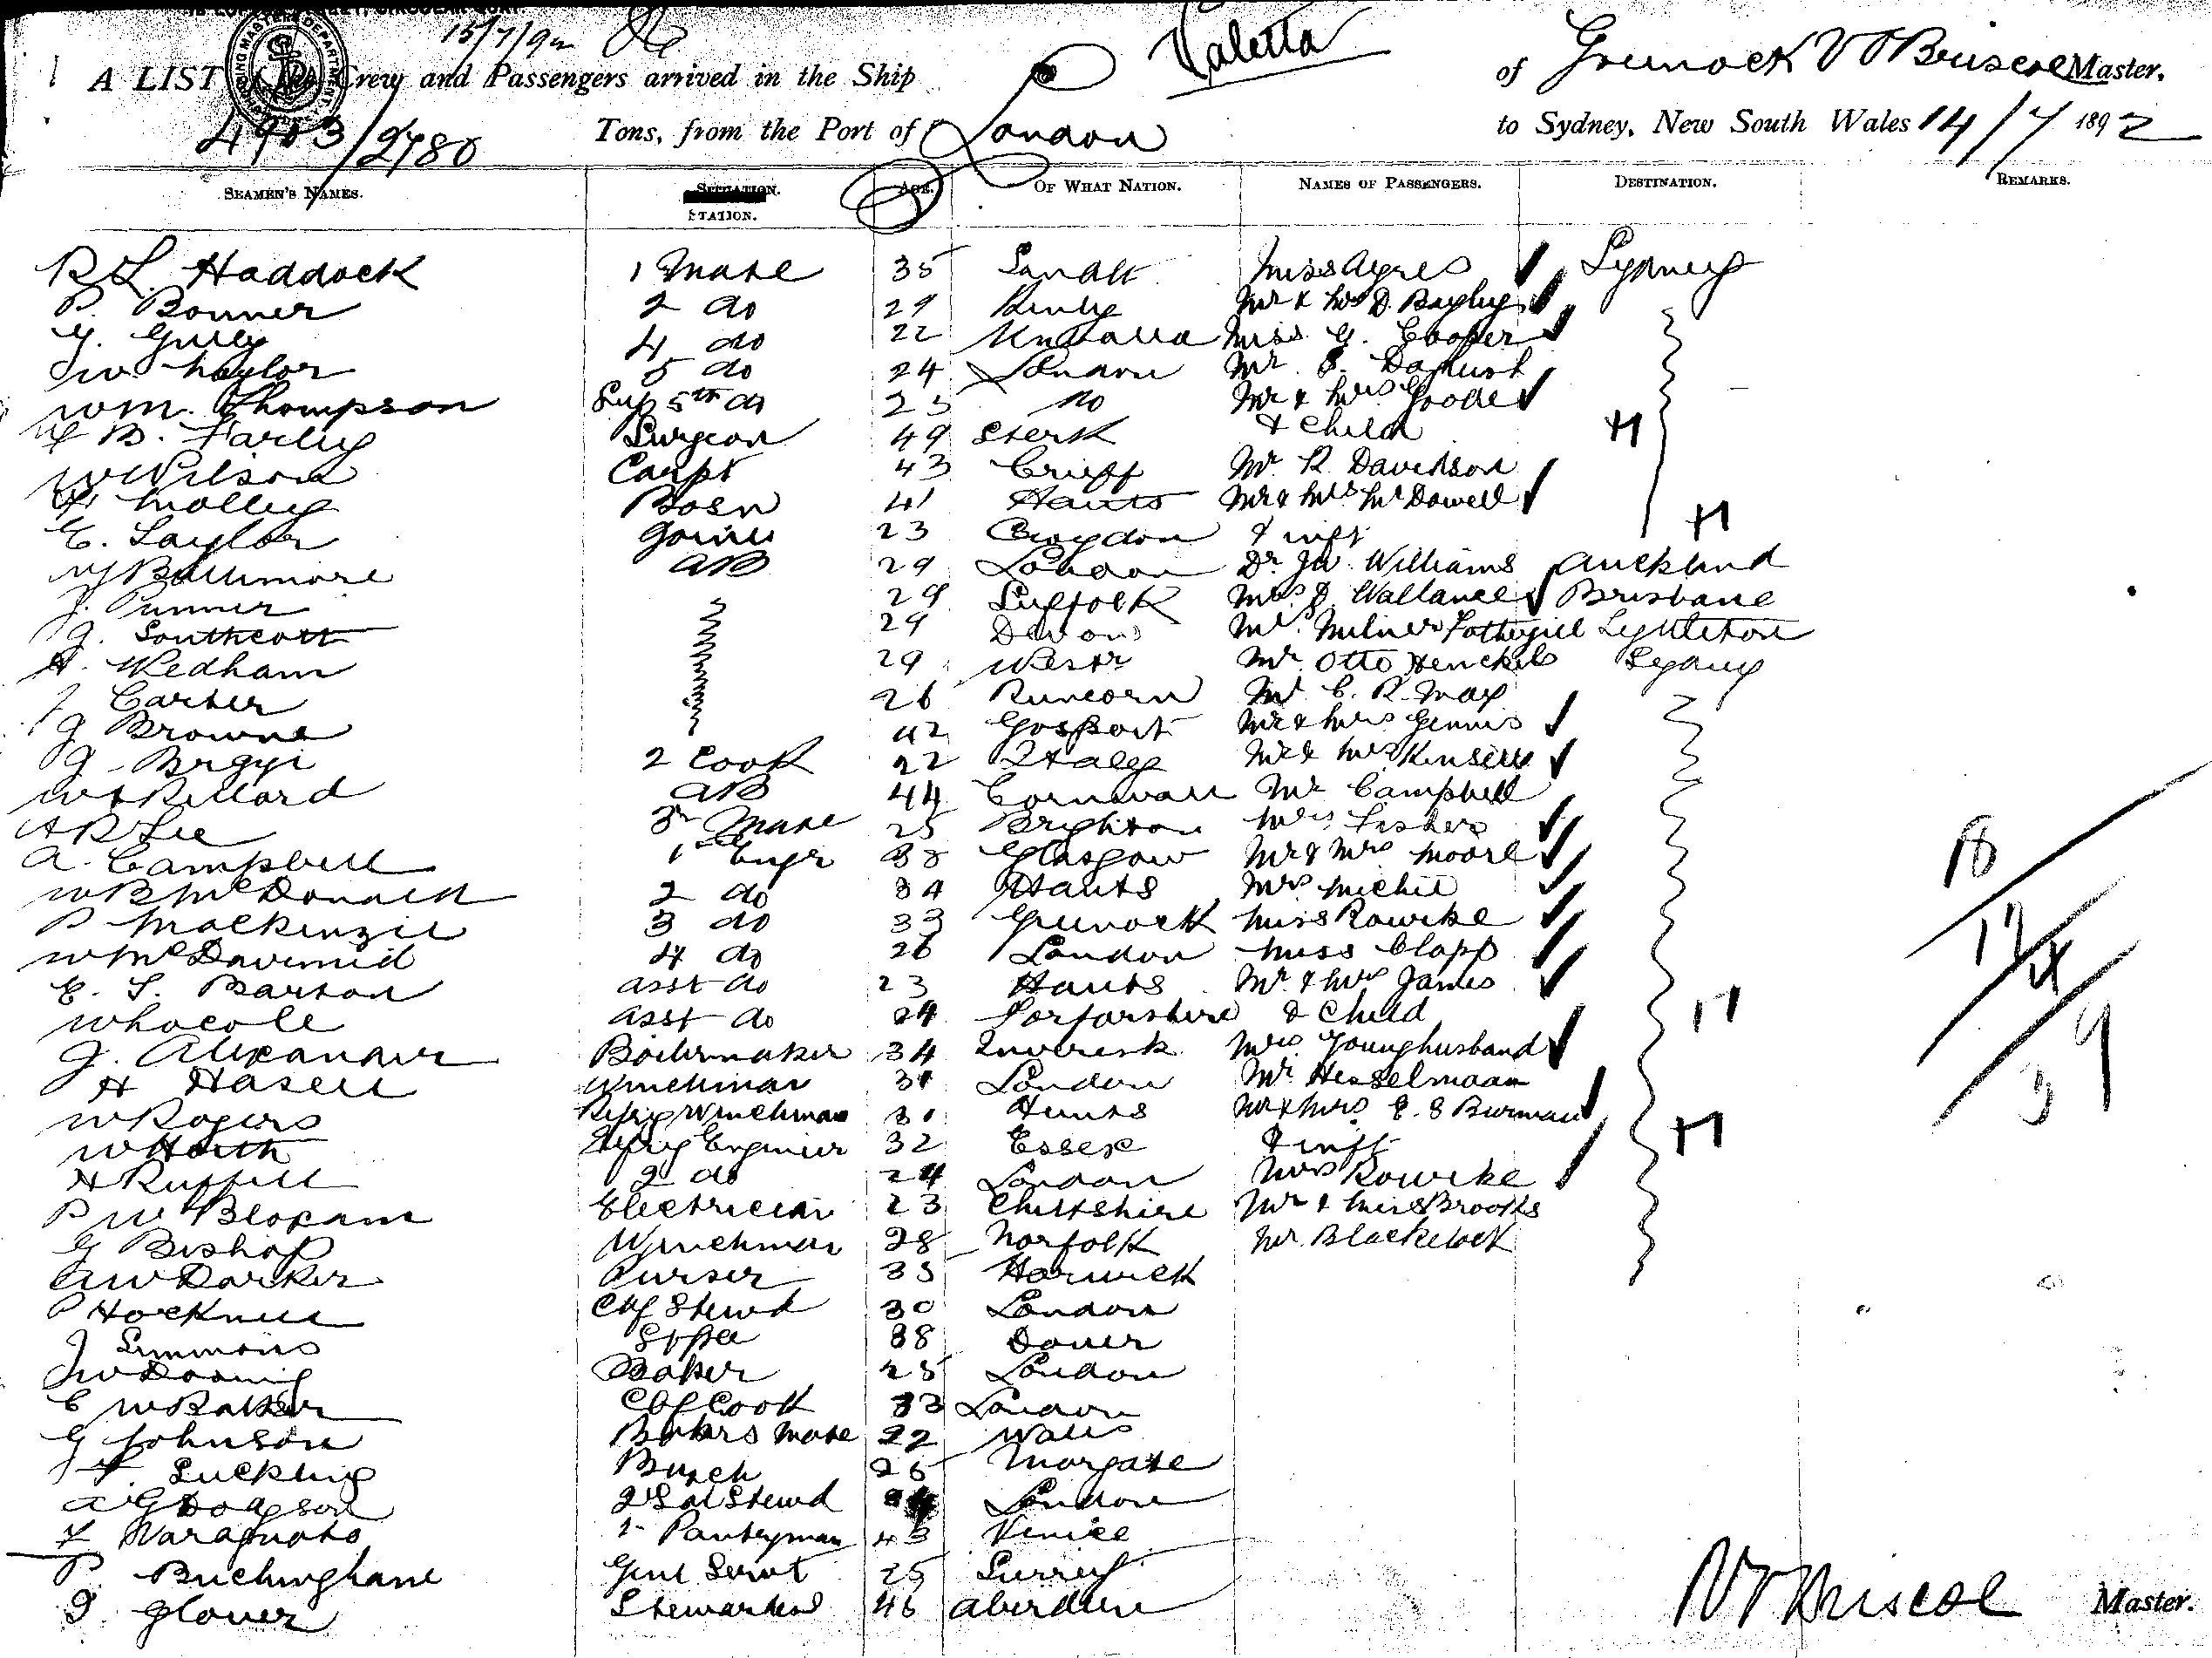 15/7/92
Valetta
A LIST Crew and Passengers arrived in the Ship of Greenock Briscoe Master,
4903/2980 Tons, from the Port of London to Sydney, New South Wales 14/7 1892
SEAMEN'S NAMES. STATION. AGE. OF WHAT NATION. NAMES OF PASSENGERS. DESTINATION. REMARKS.
R L. Haddock 1 Mate 35 Miss Ayres Sydney
P. Bonner 2 do 29 Mr & Mrs D. Bagley
4 do 22 Umballa Miss G. Cooper
J W Naylor 5 do 24 London Mr
Wm. Thompson Sup 5th do 25 do Mr & Mrs Goode
B. Farley Surgeon 49 & Child H
W Wilson Carpt 43 Crieff Mr R Davidson
Molley Bosn 41 Hants Mr & Mrs McDowell
E. Saylor Joiner 23 Croydon & inft H
Baltimore AB 29 London Dr Jw. Williams Auckland
J. Punner 29 Suffolk Mrs J. Wallance Brisbane
J. Southcott 29 Devon Mr. Milner Fothergill Lyttleton
H. Wedham 29 Westr Mr Otto Henckels Sydney
J Carter 26 Runcorn Mr C. R. May
J Browne 42 Gosport Mr & Mrs Gennis
G 2 Cook 22 Italy Mr & Mrs Kinsell
AB 44 Cornwall Mr Campbell
A R Lee 3r Mate 25 Brighton Mrs Fisher
A. Campbell 1st Engr 38 Glasgow Mr & Mrs Moore 18
W B McDonald 2 do 34 Hants Mrs Michie
P Mackenzie 3 do 33 Greenock Miss Rourke
W McDavimid 4 do 26 London Miss Clapp 17
E. S. Barton asst do 23 Hants Mr & Mrs James 4
asst do 24 Forfarshire & Child H
J. Alexander Boilermaker 34 Inveresk Mrs Younghusband
H Hasell Winchman 31 London Mr Hesselmaan 39
W Rogers Refrig Winchman 31 Hunts Mr & Mrs E. S Burman
W Horth Refrig Engineer 32 Essex & inft H
H Ruffell 2 do 24 London Mrs Rourke
P W Bloxam Electrician 23 Mr & Miss Brooks
G Bishop Winchman 28 Norfolk Mr. Blackelock
A W Darker Purser 35 Harwick
P Hocknell Chf Stewd 30 London
J Simmons 38 Dover
J W Baker 25 London
E W Balker Chf Cook 33 London
G Johnson Bakers Mate 22 Wales
F. Suckling Butch 25 Margate
A G Dodgson 2 Sal Stewd London
F 1 Pantryman 43 Venice
P. Buchinghane Genl Servt 25 Surrey
J. Glover Stewardess 46 Aberdeen
Briscoe Master.